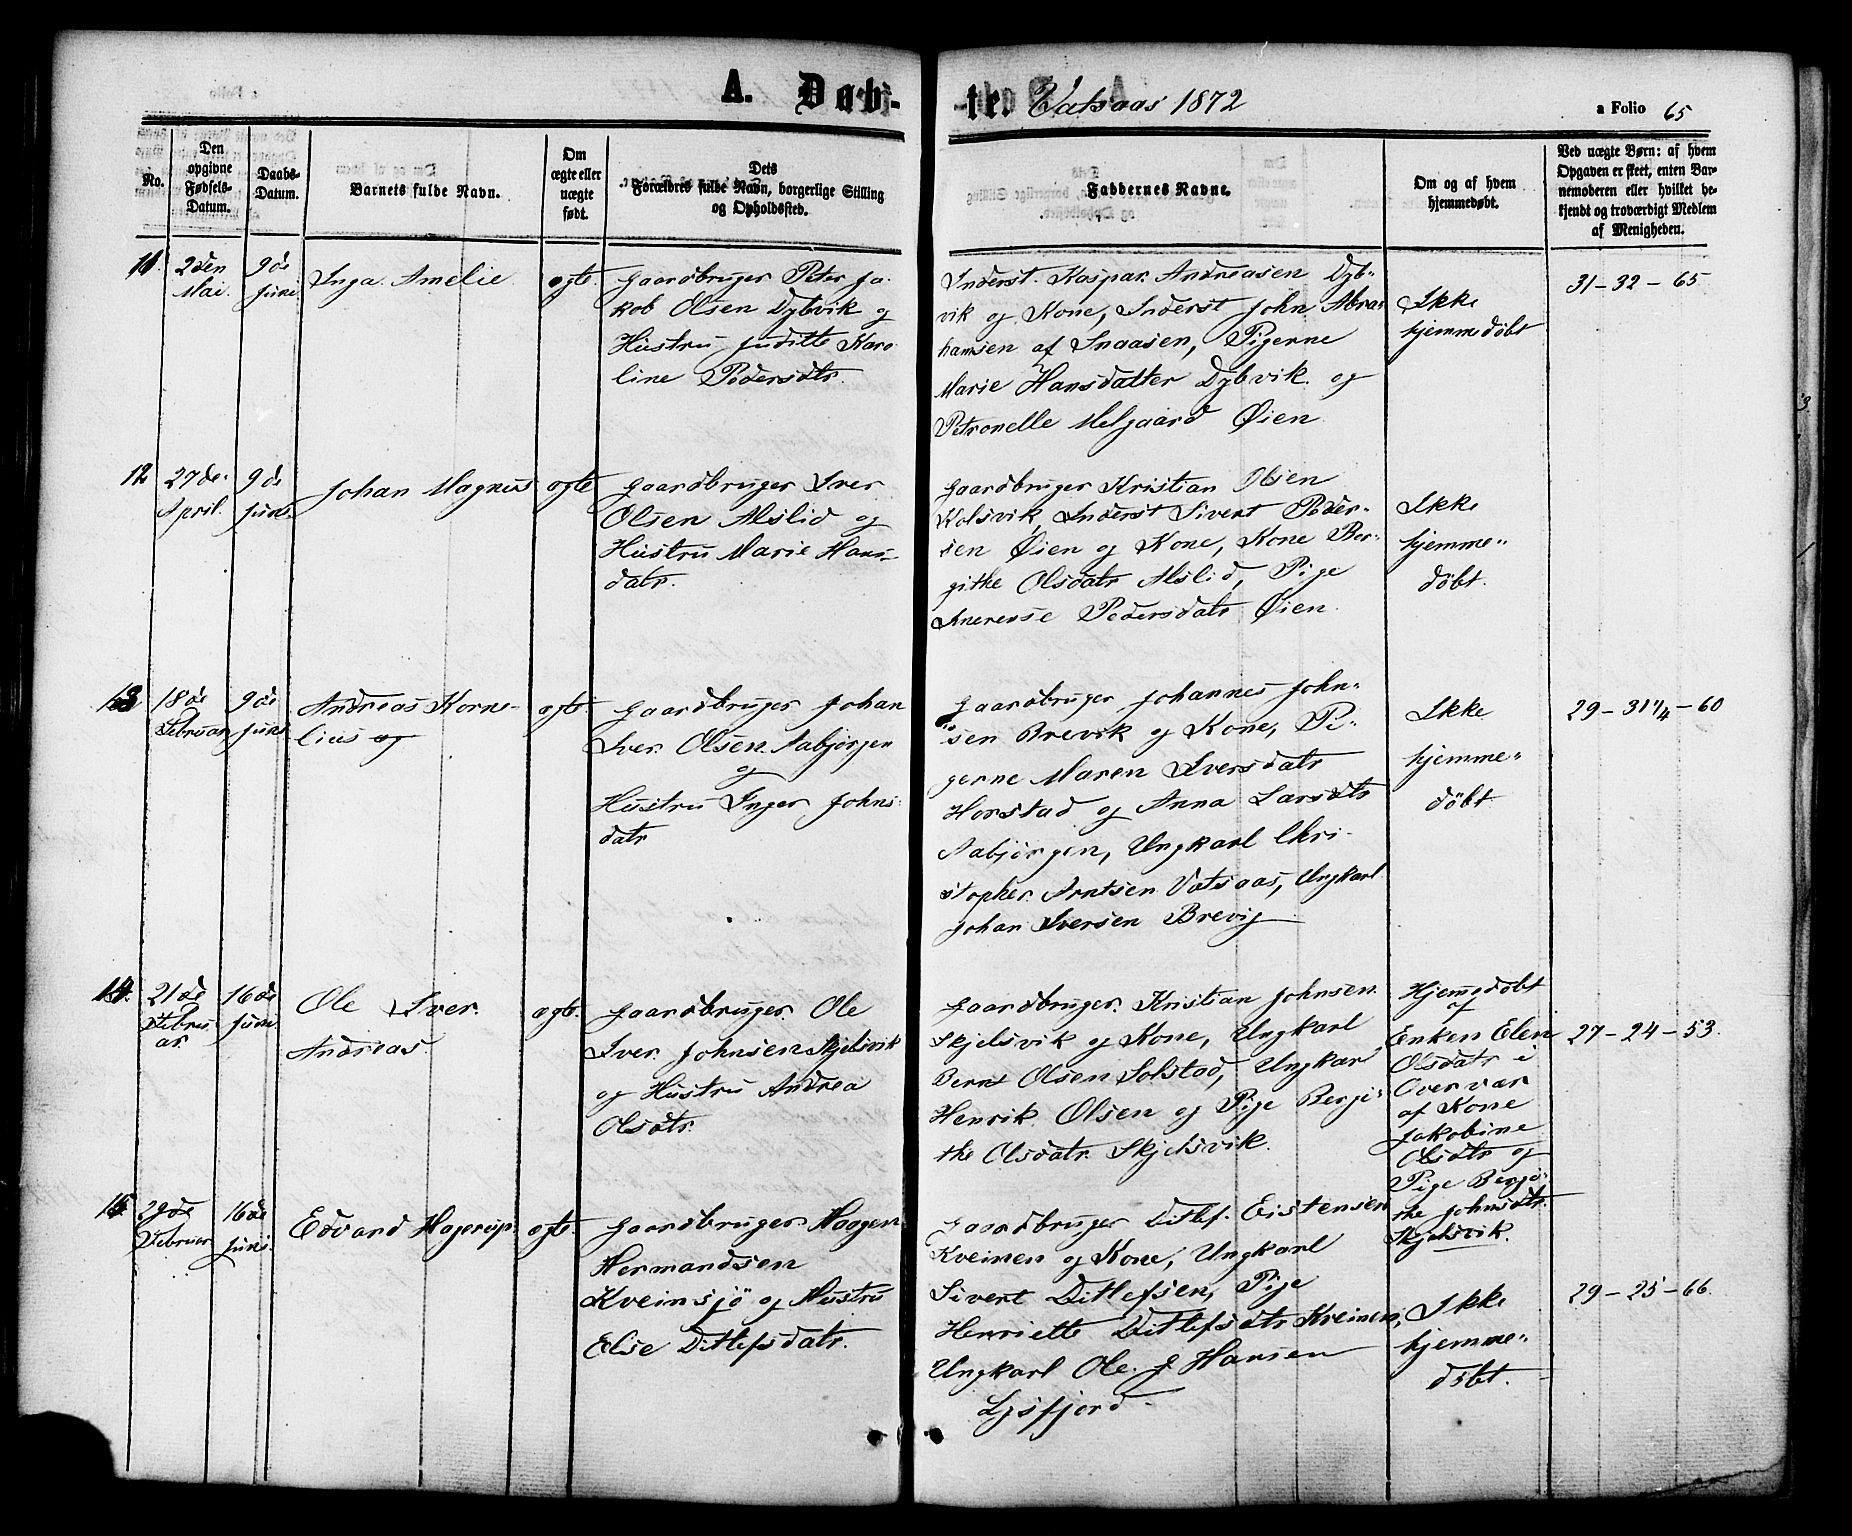 A. Døb-
te. Vatsaas 1872
a Folio 65
No.
Den
opgivne
Fødsels-
Datum.
Daabs-
Datum.
Barnets fulde Navn.
Om
ægte eller
uægte
født.
Dets
Forældres fulde Navn, borgerlige Stilling
og Opholdssted.
Faddernes Navne.
Om og af hvem
hjemmedøbt.
Ved uægte Børn: af hvem
Opgaven er skeet, enten Bar-
nemoderen eller hvilket be-
kjendt og troværdigt Medlem
af Menigheden.
11.
2den
Mai.
9de
Juni.
Inga Amelie
ægte.
Gaardbruger Peter Ja-
kob Olsen Dybvik og
Hustru Juditte Karo
line Pedersdtr.
Inderst Kaspar Andreasen Dyb-
vik og Kone, Inderst John Abra-
hamsen af Snaasen, Pigerne
Marie Hansdatter Dybvik og
Petronelle Melgaard Øien
Ikke
hjemmedøbt
31-32-65
12
27de
April.
9de
Juni.
Johan Magnus
ægte
Gaardbruger Iver
Olsen Alslid og
Hustru Marie Hans-
datr.
Gaardbruger Kristian Olsen
Kolsvik, Inderst Sivert Peder-
sen Øien og Kone, Kone Ber-
githe Olsdatr Alslid, Pige
Anerense Pedersdatr Øien.
Ikke
hjemme-
døbt.
13
18de
Februar
9de
Juni
Andreas Korne-
lius og
ægte.
Gaardbruger Johan
Iver Olsen Aabjørgen
og
Hustru Inger Johns
datr
Gaardbruger Johannes John-
sen Brevik og Kone, Pi-
gerne Maren Iversdatr
Horstad og Anna Larsdtr
Aabjørgen, Ungkarl Chri-
stopher Arntsen Vatsaas, Ungkarl
Johan Iversen Brevig
Ikke
hjemme-
døbt
29-31¼-60
14.
21de
Febru
ar.
16de
Juni
Ole Iver
Andreas.
ægte.
Gaardbruger Ole
Iver Johnsen Skjelsvik
og Hustru Andrea
Olsdtr.
Gaardbruger Kristian Johnsen
Skjelsvik og Kone, Ungkarl
Bernt Olsen Solstad, Ungkarl
Henrik Olsen og Pige Bergi-
the Olsdatr Skjelsvik.
Hjemmedøbt
af
Enken Elen
Olsdatr i
Overvær
af Kone
Jakobine
Olsdtr og
Pige Bergi
the Johnsdtr
Skjelsvik.
27-24-53.
15
29de
Februar
16de
Juni.
Edvard Hagerup.
ægte.
Gaardbruger Haagen
Hermandsen
Kveinsjö og Hustru
Elise Ditlefsdatr.
Gaardbruger Ditlef Eistensen
Kveinen og Kone, Ungkarl
Sivert Ditlefsen, Pige
Henriette Ditlefsdtr Kveinen,
Ungkarl Ole J Hansen
Lysfjord
Ikke
hjemme-
døbt.
29-25-66.